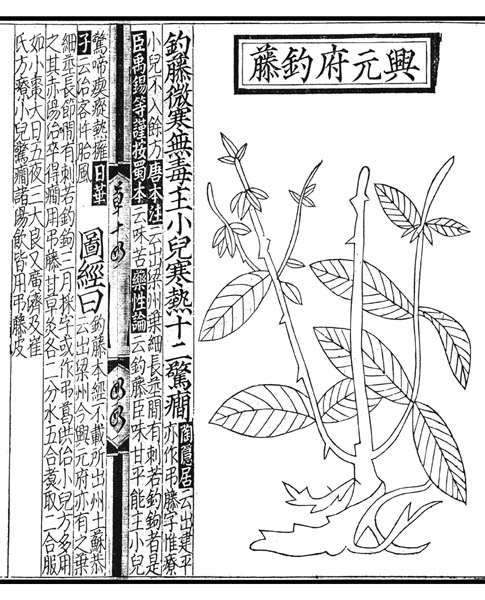 興元府釣藤
釣藤微寒無毒主小兒寒熱十二驚癇
陶隱居云出建平
亦作弔藤字惟療
小兒不入餘方唐本注云出梁州葉細長莖間有刺若釣鉤者是
臣禹錫等謹按蜀本云味苦藥性論云釣藤臣味甘平能主小兒
草十四
驚啼瘈瘲熱擁日華
子云治客忤胎風
圖經曰
釣藤本經不載所出州土蘇恭
云出梁州今興元府亦有之葉
細莖長節間有刺若釣鉤三月採字或作弔葛洪治小兒方多用
之其赤湯治卒得癇用弔藤甘草炙各二分水五合煮取二合服
如小棗大日五夜三大良又廣濟及崔
氏方療小兒驚癇諸湯飲皆用弔藤皮